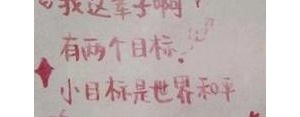 我这辈子啊
有两个目标.
小目标是世界和平